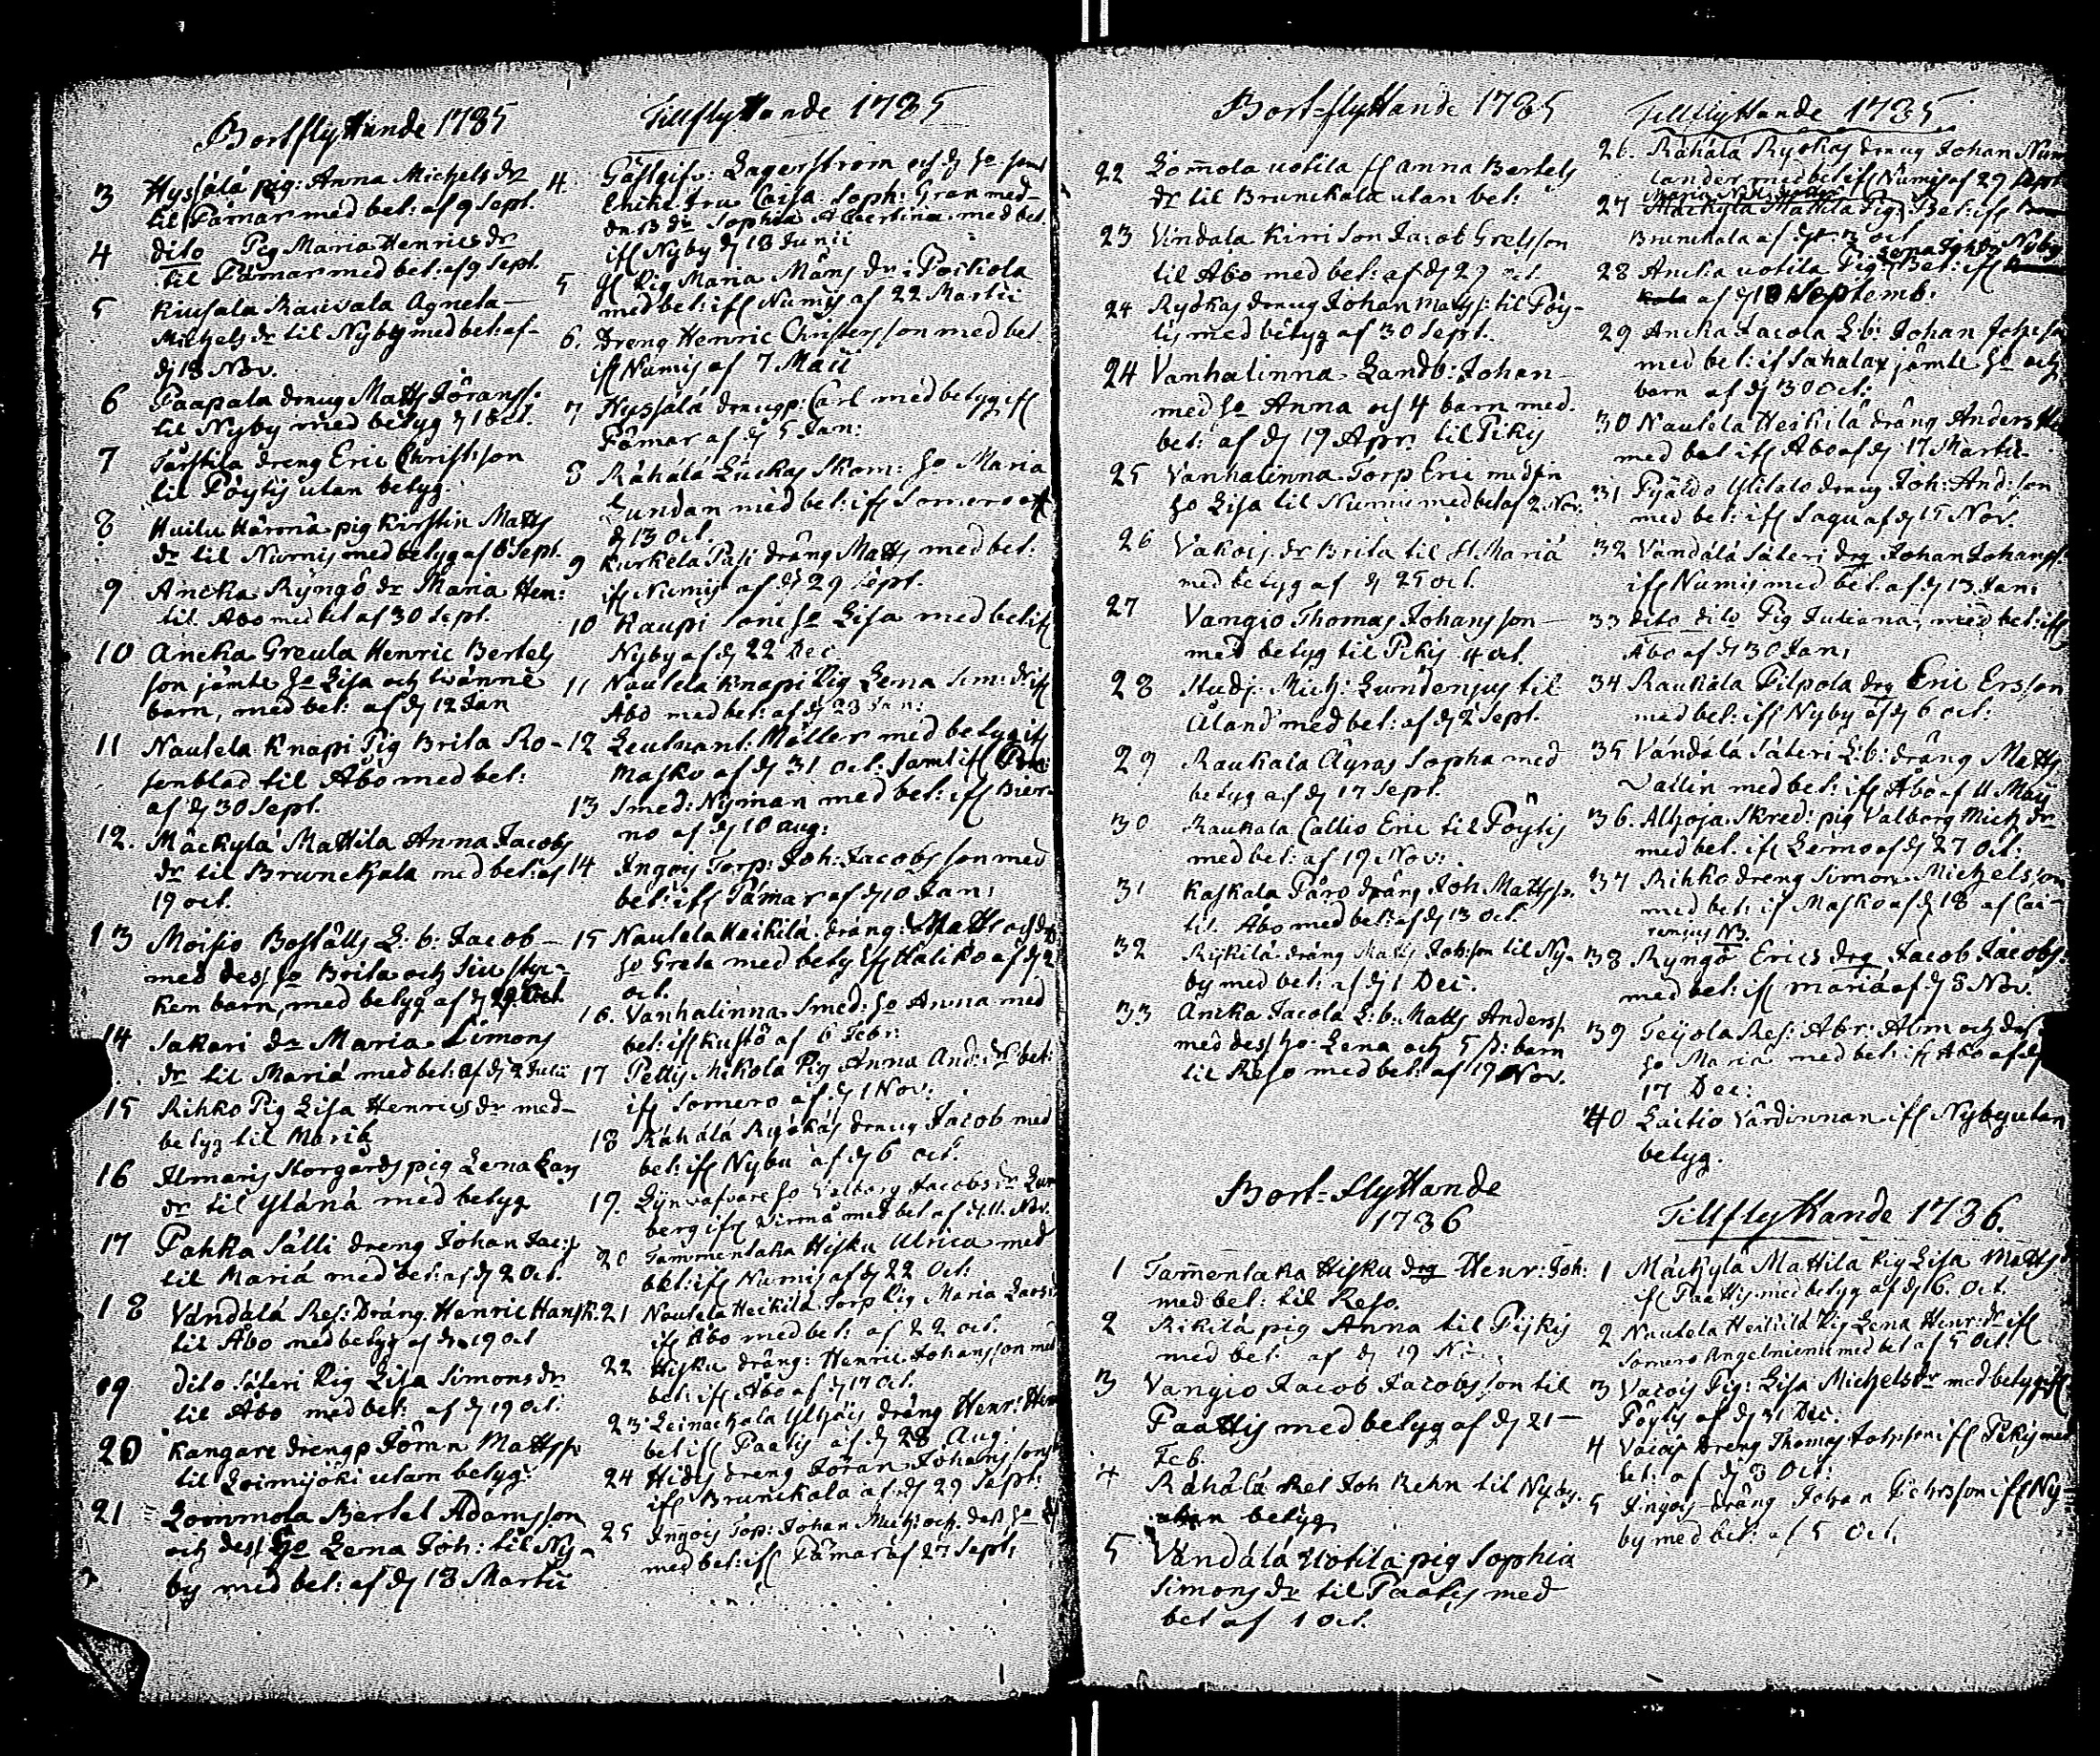 Bortflyttande 1785
3 Hyssälä pig: Anna Michels dr
til Pämar med bet: af 9 Sept.
4 dito Pig Maria Henrics dr
til Pämar med bet: af 9 Sept.
5 Kiusala Rauvala Agneta
Michels dr til Nyby med bet: af
d 18 Nov.
6 Paapala dräng Matts Jöranss:
til Nyby med betyg d 1 Oct.
7 Tärstila dreng Eric Christsson
til Pöytis utan betyg.
8 Huilu Härmä pig Kirstin Matts
dr til Numis med betyg af 6 Sept.
9 Ancka Ryngö dr Maria Hen:
til Åbo med bet af 30 Sept.
10 Ancka Greula Henric Bertels
son jämte ho Lisa och twänne
barn, med bet: af d 12 Jan
11 Nautela Knapi Pig Brita Ro-
senblad til Åbo med bet:
af d 30 Sept.
12. Mäckylä Mattila Anna Jacobs
dr til Brunckala med bet: af
19 oct.
13 Moisio Boställs L: b: Jacob
med dess ho Brita och siu styc-
ken barn, med betyg af d 29 Oct.
14 Sakari dr Maria Simons
dr til Mariä med bet: af d 2 Julii
15 Rihko Pig Lisa Henrics dr med
betyg til Mariä
16 Ilmaris Korgords pig Lena Lars
dr til Yläná med betyg
17 Pahka Sälli dreng Johan Jac:s
til Mariä med bet: af d 2 Oct.
18 Vändälä Res: Dräng. Henric Hanss.
til Åbo med betyg af d 19 oct
19 dito Säteri Pig Lisa Simons dr
til Åbo med bet: af d 19 oct.
20 Kangare drengp Jöran Mattss:
til Loimijöki utan betyg.
21 Lommola Bertel Adamsson
och dess ho Lena Joh: til Ny-
by med bet: af d 18 Martii
Tillflyttande 1785
4 Gästgifv: Lagerström och d ho samt
Enkefru Caisa Soph: Gran med
Sophia Albertina med bet
ifr Nyby d 18 Junii
5 Pig Maria Måns dr i Pockola
med bet: ifr Numis af 22 Martii
6. Dreng Henric Christersson med bet.
ifr Numis af 7 Maii
7 Hyssälä drengp: Carl med betyg ifr
Pämar af d 5 Jan:
8 Rähälä Luckas Skom: ho Maria
Lundan med bet: ifr Somero af
d 13 Oct.
9 Kurkela Pasi dräng Matts med bet:
ifr Numis af d 29 Sept.
10 Kaupi Soni ho Lisa med bet ifr
Nyby af d 22 Dec
11 Nautela Knapi Pig Lena Sim: dr ifr
Åbo med bet: af d 23 Jan:
12 Leutnant: Möller med betyg ifr
Masko af d 31 Oct. samt ifr
13 Smed: Nyman med bet: ifr Bier-
no af d 10 Aug:
14 Ingois Torp: Joh: Jacobsson med
bet: ifr Pämar af d 10 Jan:
15 Nautela Heikilä dräng: Matts och
ho Greta med bety ifr Haliko af d 2
oct.
16. Vanhalinna Smed: ho Anna med
bet: ifr Kustö af 6 Febr:
17 Pettis Mikola Pig Anna And: dr bet:
ifr Somero af d 1 Nov:
18 Rähälä Ryökäs dräng Jacob med
bet: ifr Nyby af d 6 oct.
19. ho Valborg Jacobs dr
berg ifr Virmå med bet af d 11. Nov.
20 Tammentaka Hisku Ulrica med
bet: ifr Numis af d 22 Oct:
21 Nautela Heikilä Torp Pig Maria Lars:
ifr Åbo med bet: af 22 oct.
22 Hisku dräng: Henric Johansson med
bet: ifr Åbo af d 17 Oct.
23 Leinackala Ylhäis dräng Henr: Hen
bet ifr Paatis af d 28 Aug:
24 Hides dreng Jöran Johansson
ifr Brunckala af d 29 Sept:
25 Ingois Top: Johan Mich: och dess ho
med bet: ifr Pämar af 27 Sept:
Bort-flyttande 1785
22 Lommola uotila ifr Anna Bertels
dr til Brunckala utan bet:
23 Vindala Kirri Son Jacob Gretsson
til Åbo med bet: af d 29 oct.
24 Ryökäs dräng Johan Matss: til Pöy-
tis med betyg af 30 Sept.
24 Vanhalinna Landb: Johan
med ho Anna och 4 barn med.
bet: af d 19 Apr: til Piky
25 Vanhalinna Torp Eric med sin
ho Lisa til Numis med bet af 2 Nov.
26 Vakois dr Brita til St. Mariä
med betyg af d 25 oct.
27 Vangio Thomas Johansson
med betyg til Pikis 4 oct.
28 Studj: Mich: Lundenius til
Åland med bet: af d 2 Sept.
29 Raukala Äyräs Sopha med
betyg af d 17 Sept.
30 Raukala Callio Eric til Pöytis
med bet: af 19 Nov:
31 Kaskala Päro dräng Joh. Mattss.
til Åbo med bet: af d 13 Oct.
32 Rikilä dräng Matts Johsson til Ny-
by med bet: af d 1 Dec.
33 Ancka Jacola L: b: Matts Anderss.
med dess ho Lena och 5 st: barn
til Reso med bet: af 19 Nov.
Bort-flyttande
1786
1 Tammentaka Hisku drg Henr: Joh:
med bet: til Reso.
2 Rikilä pig Anna til Pijkis
med bet: af d 19
3 Vangio Jacob Jacobsson til
Paattis med betyg af d 21
Feb.
4 Rähälä Joh Rehn til Nyby.
utan betyg
5 Vändälä Uotila pig Sophia
Simons dr til Paatis med
bet af 1 oct.
Tillflyttande 1785
26. Rähälä Ryökäs dräng Johan Num
lander med bet: ifr Numis af 29 Sept
27 Mäckylä Mattila Pig Bet: ifr
Brunckala af d
28 Ancka uotila Pig Bet: ifr Nyby
af d 18 Septemb.
29 Ancka Jacola L: b: Johan Johsson
med bet: ifr Sahalax jämte ho och
barn af d 30 Oct:
30 Nautela Heikilä dräng Anders
med bet ifr Åbo af d 17 Martii.
31 Pyäldö Ylitalo dräng Joh: And: son
med bet: ifr Sagu af d 15 Nov.
32 Vändälä Säteri drg Johan Johanss:
ifr Numis med bet. af d 13 Jan:
33 dito dito Pig Juliana, med bet: ifr
Åbo af d 30 Jan:
34 Raukala Pilpola drg Eric Ersson
med bet: ifr Nyby af d 6 oct:
35 Vändälä Säteri L: b: dräng Matts
Vallin med bet: ifr Åbo af 11 Maij
36. Alhoja Skred: pig Valborg Mich dr
med bet. ifr Lemo af d 27 oct:
37 Rihko dreng Simon Michelsson
med bet: ifr Masko af d 18 af Lau-
rensius NB.
38 Ryngö Erics drg Jacob Jacobs:
med bet: ifr Mariä af d 8 Nov.
39 Teijola Res: Abr: Alm och dess
ho Maria med bet: ifr Åbo af d
17 Dec:
40 Laitio Värdinnan ifr Nyby utan
betyg.
Tillflyttande 1786.
1 Mäckylä Mattila Pig Lisa Matts
ifr Paattis med betyg af d 16. Oct.
2 Nautela Heikilä Pig Lena Henr: dr ifr
Somero Angelniemi med bet af 5 Oct:
3 Vacois Pig: Lisa Michels dr med betyg ifr
Pöytis af d 31 Dec.
4 Vacois Dreng Thomas Johsson ifr Pikis med
bet: af d 3 Oct:
5 Ingois dräng Johan ifr Ny-
by med bet: af 5 Oct.